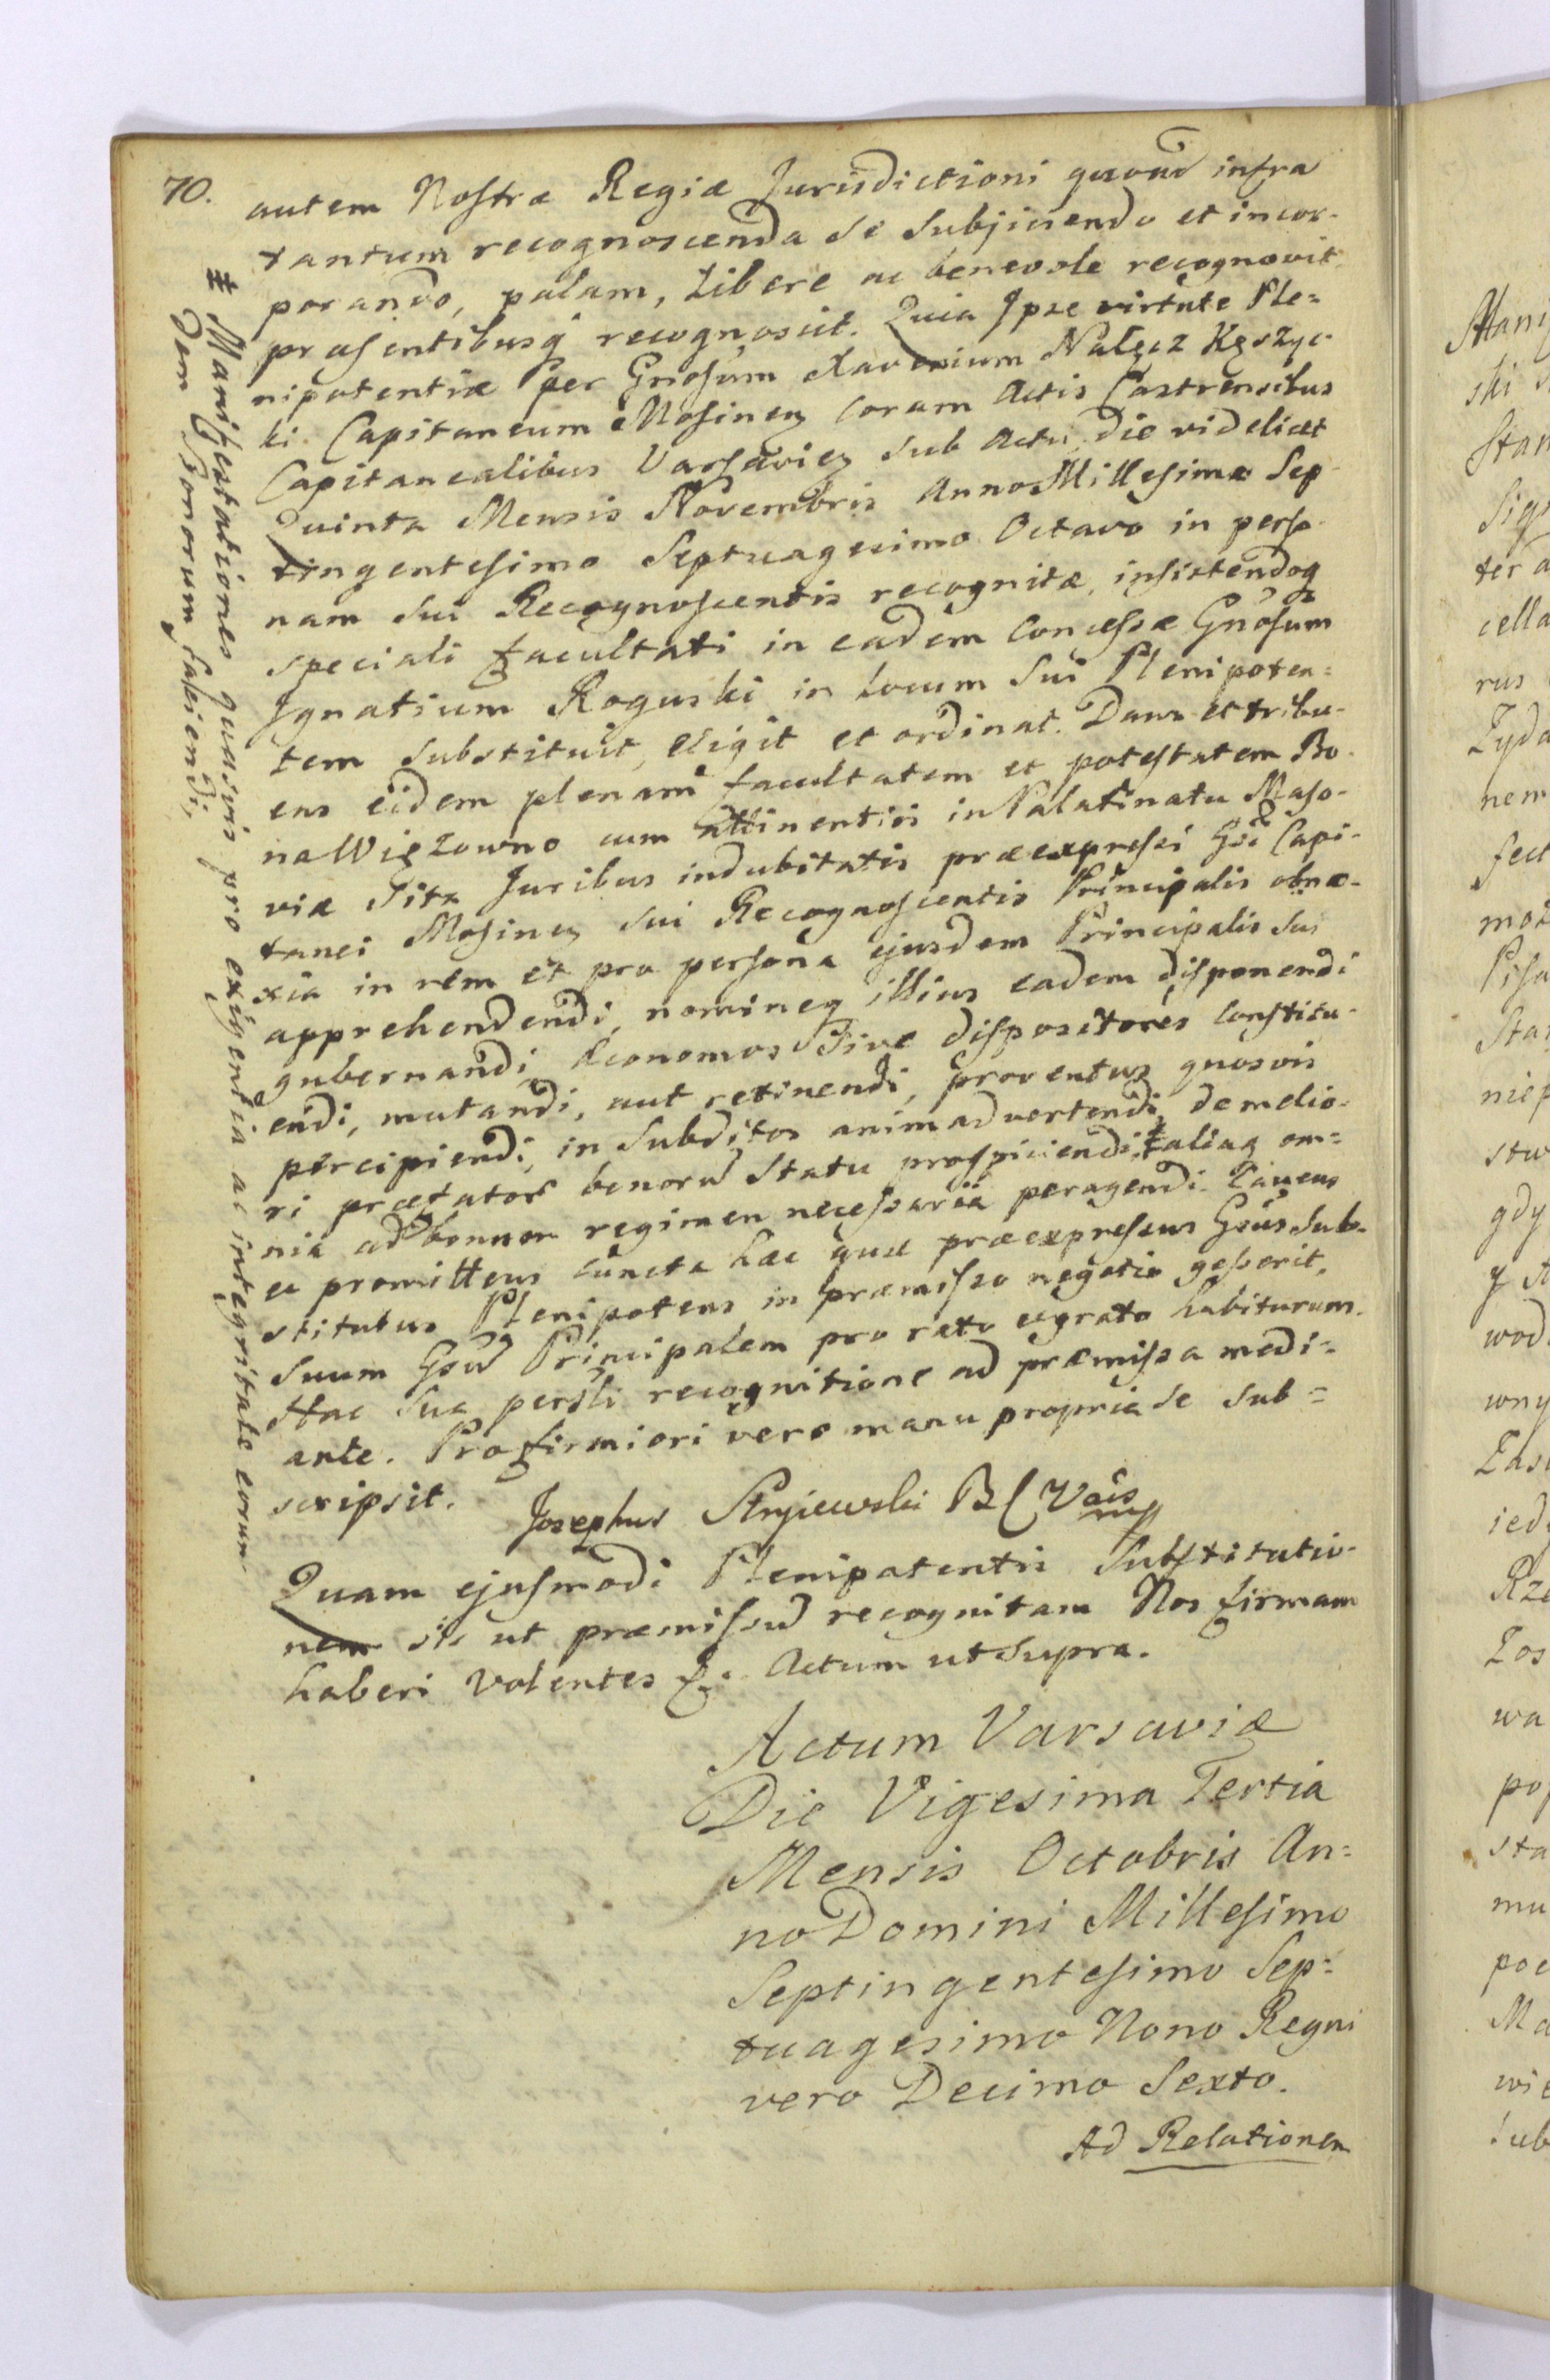 70.
autem Nostræ Regiæ Jurisdictioni quoad infra
tantum recognoscenda se Subjiciendo et incor-
porando, palam, Libere ac benevole recognovit
præsentibusq recognoscit. Quia Ipse virtute Ple=
nipotentiæ per Gnosum Xaverium Nałęcz Kęszyc-
ki Capitaneum Mosinen Coram Actis Castrensibus
Capitanealibus Varsavien Sub Actu, die videlicet
Quinta Mensis Novembris Anno Millesimo Sep-
tingentesimo Septuagecimo Octavo in perso-
nam Sui Recognoscentis recognitæ, insistendoq
speciali facultati in eadem Concessæ Gnosum
Ignatium Roguski in Locum Sui Plenipoten=
tem Substituit, eligit et ordinat. Dans et tribu-
ens eidem plenam facultatem et potestatem Bo-
na Wiązowno cum Attinentiis in Palatinatu Maso-
viæ Sita Juribus indubitatis præexpressi Gsi Capi-
tanei Mosinen Sui Recognoscentis Principalis obno-
xia in rem et pro persona ejusdem Principalis Sui
apprehendendi, nomineq illius eadem disponendi
gubernandi, Æconomos Sive dispositores Constitu-
endi, mutandi, aut retinendi, proventus quosvis
percipiendi, in Subditos animadvertendi, de melio-
ri præfator bonorũ Statu prospiciendi, ‡ aliaq om=
nia ad bonum regimen necessaria peragendi. Cavens
et promittens cuncta hæc quæ præexpressus Gsus Sub-
stitutus Plenipotens in præmisso negotio gesserit,
Suum Gsũ Principalem pro rato et grato habiturum.
Hac Sua persli recognitione ad præmissa medi=
ante. Pro firmiori vero manu propria se Sub=
scripsit.
Josephus Stryiewski B C Vais
mp
Quam ejusmodi Plenipotentis Substitutio-
nem sic ut præmissũ recognitam Nos firmam
haberi volentes &. Actum ut Supra.
Actum Varsaviæ
Die Vigesima Tertia
Mensis Octobris An=
no Domini Millesimo
Septingentesimo Sep=
tuagesimo Nono Regni
vero Decimo Sexto.
Ad Relationem
‡ Manifestationes quasvis pro exigentia ac integritate eorun-
dem Bonorum faciendi,